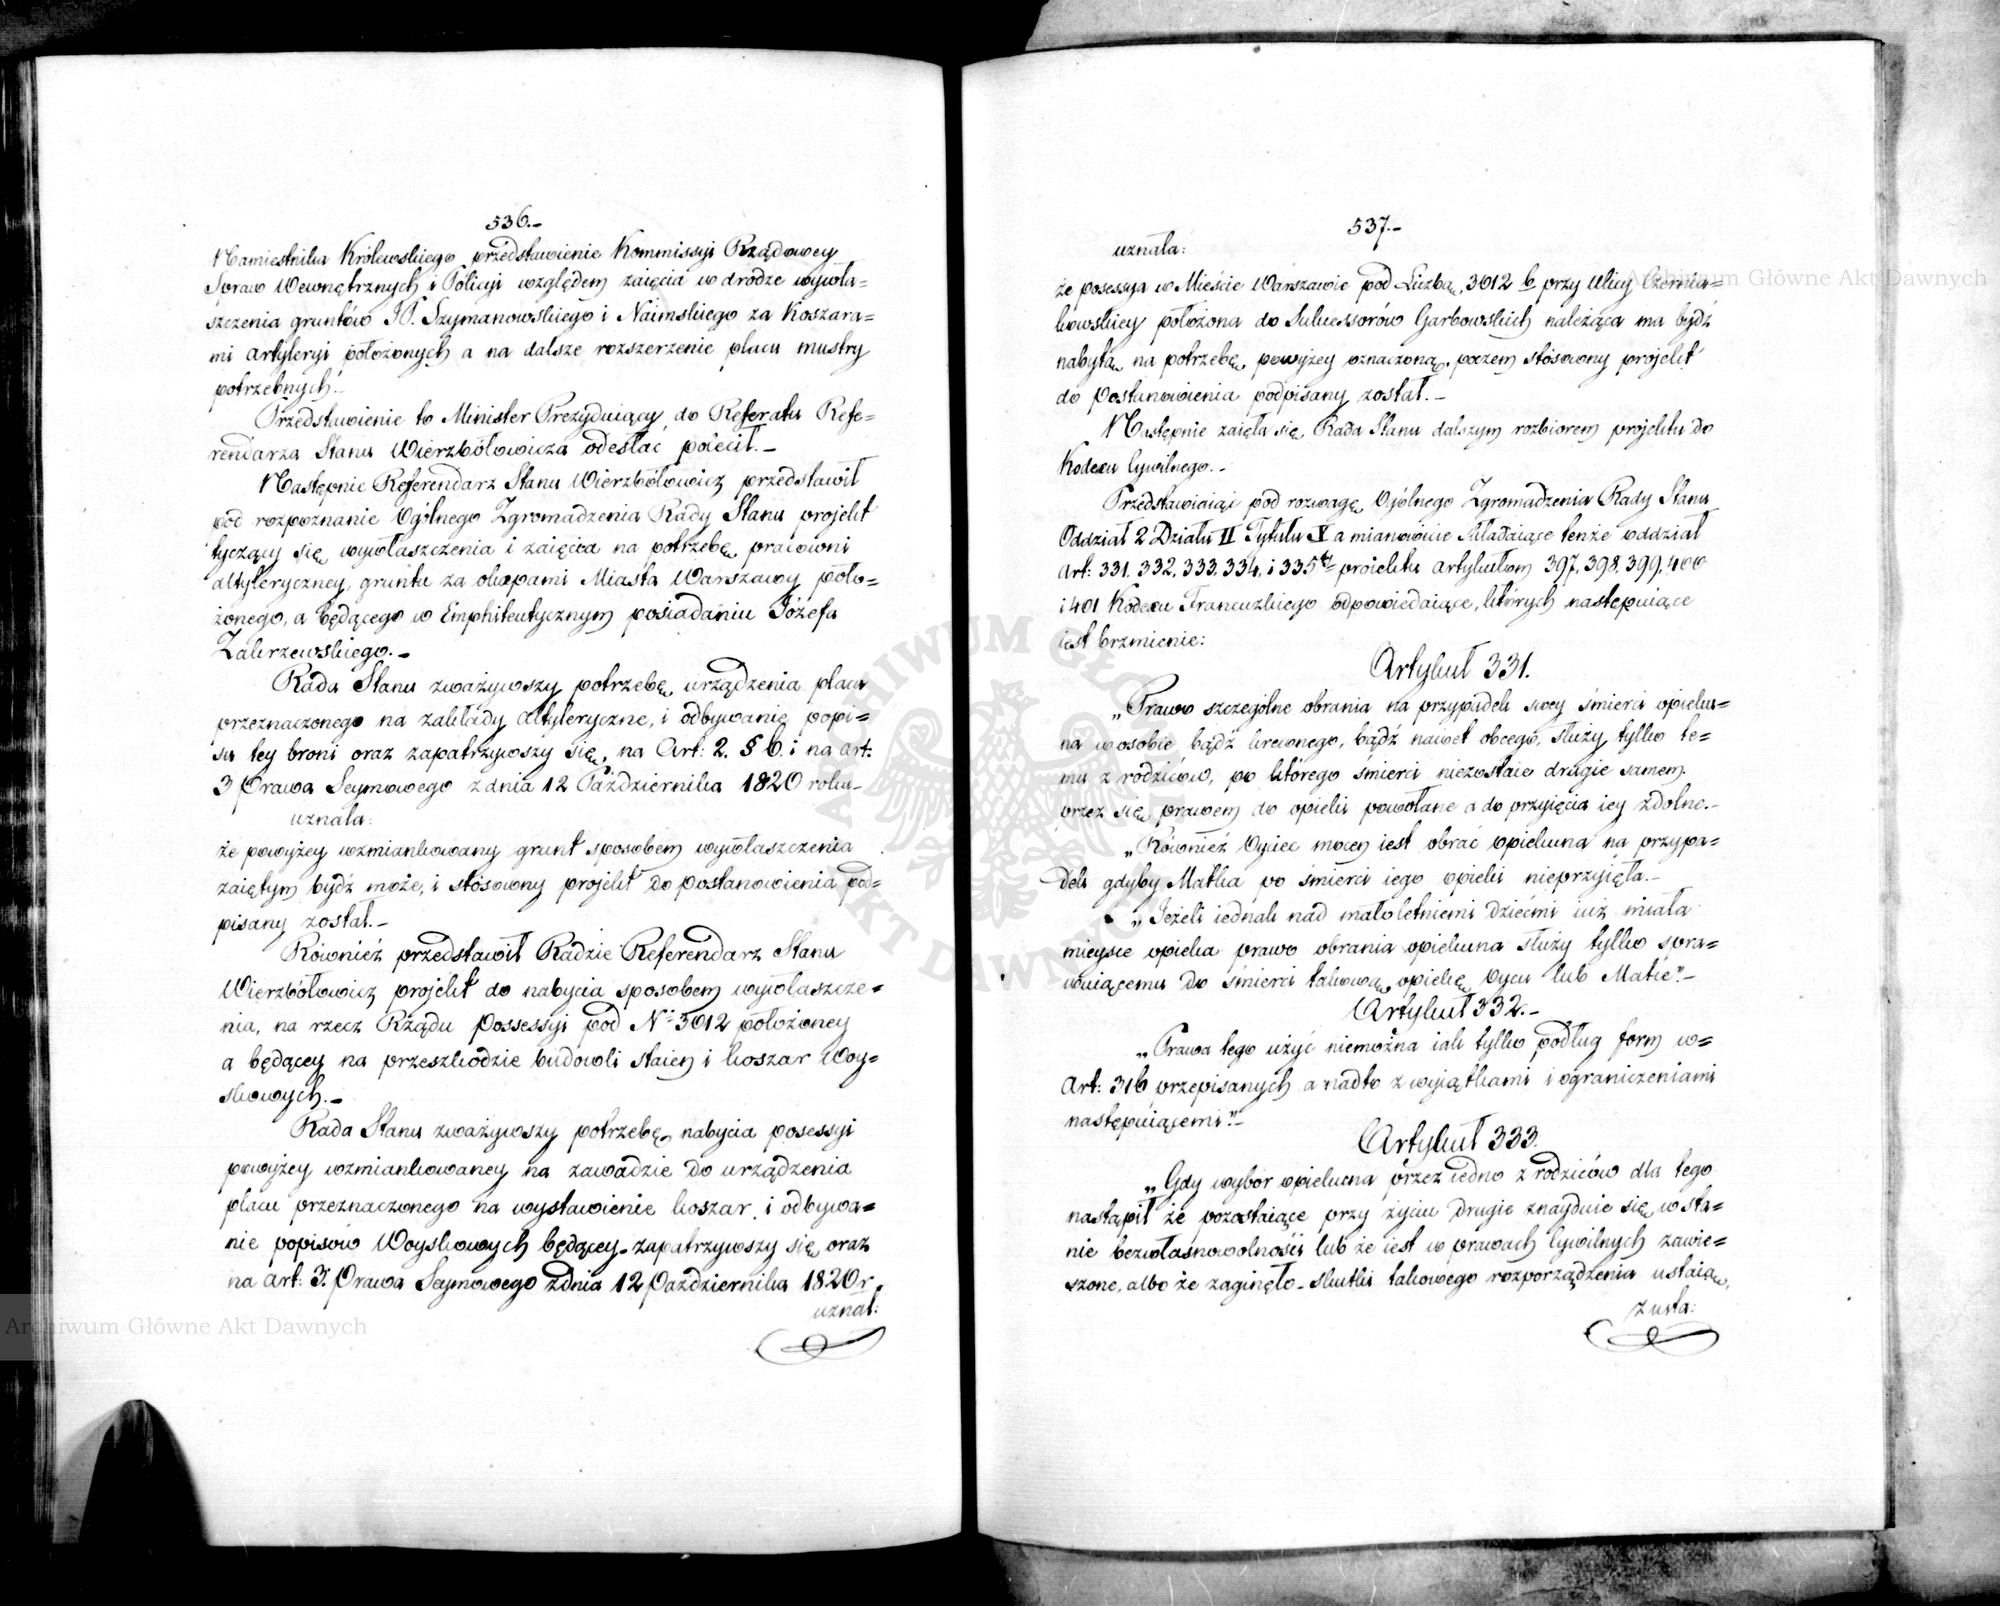 536.-
Namiestnika Królewskiego przedstawienie Kommissyi Rządowey
Spraw Wewnętrznych i Policyi względem zaięcia w drodze wywła=
szczenia gruntów JP. Szymanowskiego i Naimskiego za Koszara=
mi Artyleryi położonych a na dalsze rozszerzenie placu mustry
potrzebnych.-
Przedstawienie to Minister Prezyduiący do Referatu Refe=
rendarza Stanu Wierzbółowicza odesłać polecił.-
Następnie Referendarz Stanu Wierzbółowicz przedstawił
pod rozpoznanie Ogólnego Zgromadzenia Rady Stanu projekt
tyczący się wywłaszczenia i zaięcia na potrzebę pracowni
Artyleryczney gruntu za okopami Miasta Warszawy poło=
żonego, a będącego w Emphiteutycznym posiadaniu Józefa
Zakrzewskiego.-
Rada Stanu zważywszy potrzebę urządzenia placu
przeznaczonego na zakłady Artyleryczne, i odbywanie popi=
su tey broni oraz zapatrzywszy się na Art: 2. § b. i na art.
3 Prawa Seymowego z dnia 12 Października 1820 roku-
uznała:
że powyżey wzmiankowany grunt sposobem wywłaszczenia
zaiętym bydź może, i stósowny projekt do postanowienia pod=
pisany został.-
Również przedstawił Radzie Referendarz Stanu
Wierzbółowicz projekt do nabycia sposobem wywłaszcze=
nia, na rzecz Rządu Possessyi pod N° 3012 położoney
a będącey na przeszkodzie budowli staien i koszar Woy=
skowych.-
Rada Stanu zważywszy potrzebę nabycia posessyi
powyżey wzmiankowaney na zawadzie do urządzenia
placu przeznaczonego na wystawienie koszar, i odbywa=
nie popisów Woyskowych będącey- zapatrzywszy się oraz
na Art: 3. Prawa Seymowego z dnia 12 Października 1820 r.
uznał:
537.-
uznała:
że posessya w Mieście Warszawie pod Liczbą 3012 b przy Ulicy Czernia=
kowskiey położona do Sukcessorów Garbowskich należąca ma bydź
nabytą na potrzebę powyżey oznaczoną, poczem stósowny projekt
do Postanowienia podpisany został.-
Następnie zaięła się Rada Stanu dalszym rozbiorem projektu do
Kodexu Cywilnego.-
Przedstawiaiąc pod rozwagę Ogólnego Zgromadzenia Rady Stanu
Oddział 2 Działu II Tytułu X a mianowicie składaiące tenże oddział
Art: 331. 332. 333. 334. i 335ty projektu artykułom 397. 398. 399. 400
i 401 Kodexu Francuzkiego odpowiedaiące, których następuiące
iest brzmienie:
Artykuł 331.
„Prawo szczególne obrania na przypadek swey śmierci opieku=
na w osobie bądź krewnego, bądź nawet obcego, służy tylko te=
mu z rodziców, po którego śmierci niezostaie drugie samem
przez się prawem do opieki powołane a do przyięcia iey zdolne.-
„Również Oyciec mocen iest obrać opiekuna na przypa=
dek gdyby Matka po śmierci iego opieki nieprzyięła.-
„Jeżeli iednak nad małoletniemi dziećmi iuż miała
mieysce opieka prawo obrania opiekuna służy tylko spra=
wuiącemu do śmierci takową opiekę Oycu lub Matce”-
Artykuł 332.-
„Prawa tego użyć niemożna iak tylko podług form w=
Art: 316 przepisanych a nadto z wyiątkami i ograniczeniami
następuiącemi”-
Artykuł 333.
„Gdy wybór opiekuna przez iedno z rodziców dla tego
nastąpił że pozostaiące przy życiu drugie znayduie się w sta=
nie bezwłasnowolności lub że iest w prawach cywilnych zawie=
szone, albo że zaginęło- skutki takowego rozporządzenia ustaią,
z usta:
Archiwum Główne Akt Dawnych
Archiwum Główne Akt Dawnych
ARCHIWUM GŁÓWNE AKT DAWNYCH